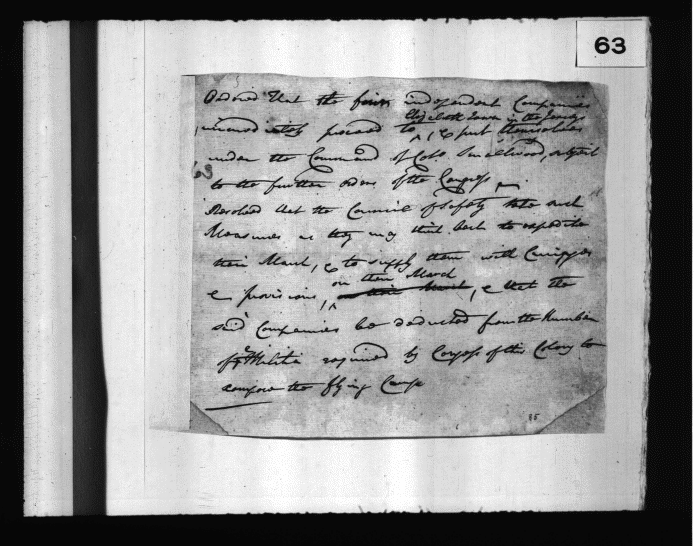 63
Ordered that the four independent Companies
Elizabeth Town in the Jerseys
immediately proceed to ^, & put themselves
under the Command of Colo. Smallwood, subject
63
to the further orders of the Congress
Resolved that the Council of Safety take such
Measures as they may think best to expedite
their March, & to supply them with
on their March
& provisions, ^ their March, & that the
said Companies be deducted from the Number
of ye Militia required by Congress of this Colony to
compose the flying Camp
85